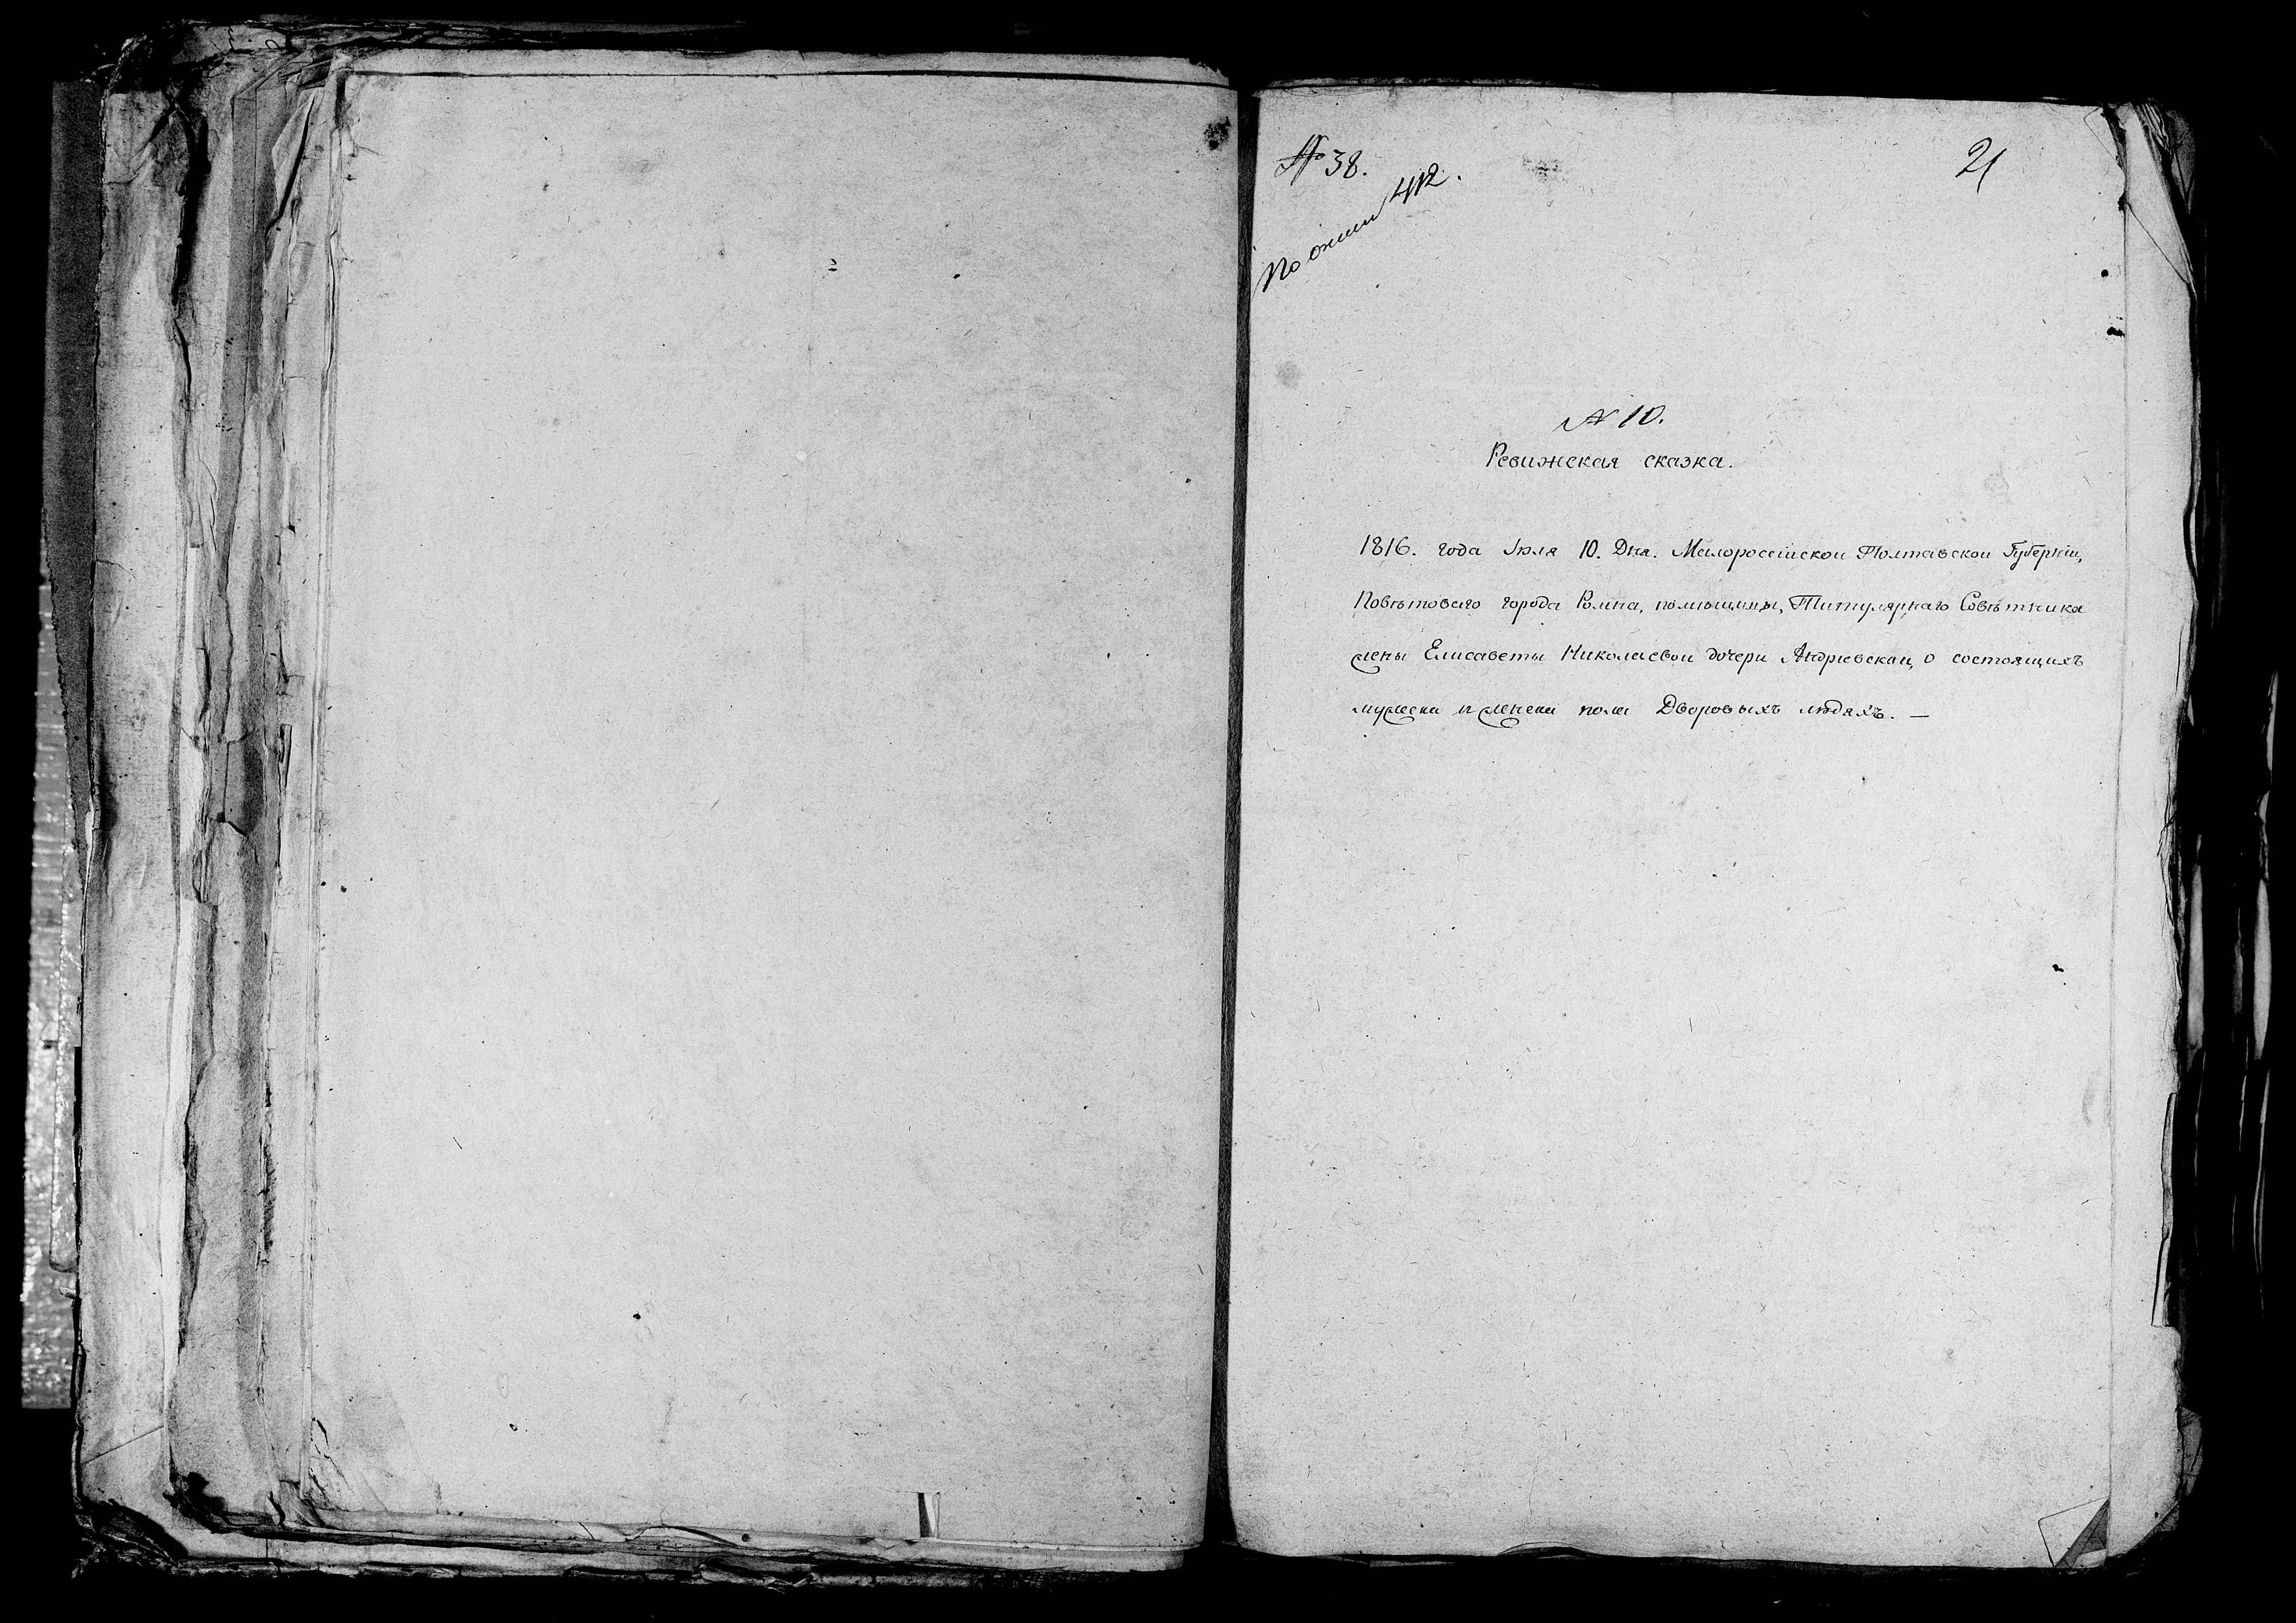 № 38.
21
По описи 412.
№ 10.
Ревижская сказка.
1816. года Іюля 10. Дня. Малоросеійской Полтавской Губерніи,
Повѣтоваго города Ромна, помѣщицы, Титулярнаго Совѣтника
жены Елисаветы Николаевой дочери Андріевской, о состоящихъ
мужеска и женска пола Дворовыхъ людяхъ. —